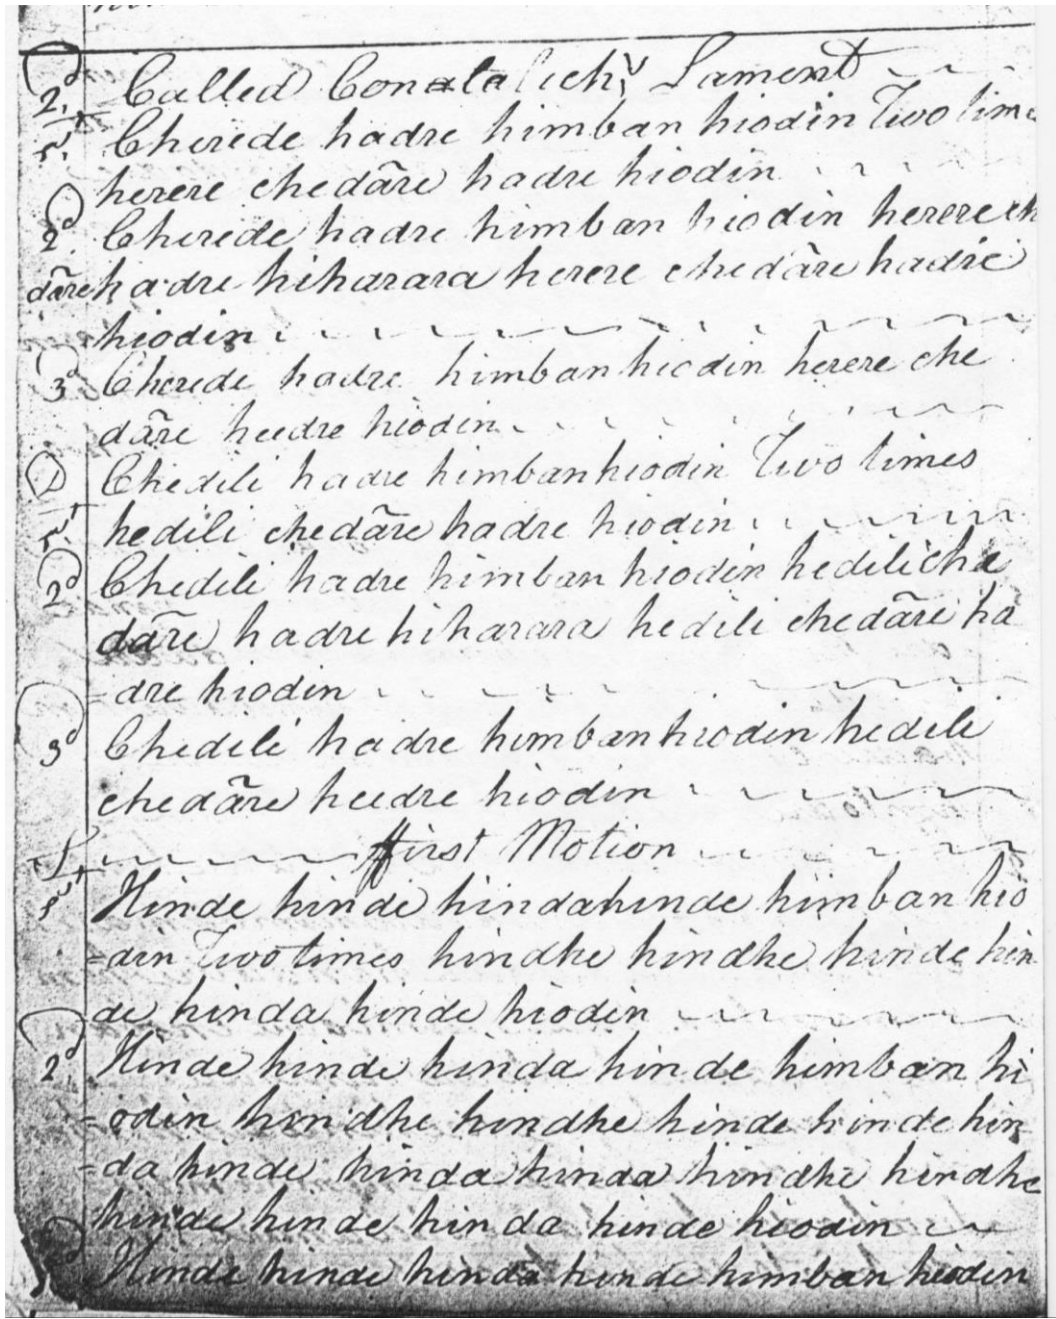 2d Called Conatalich's Lament
1st Cherede hadre himban hiodin Two times
herere chedãre hadre hiodin
2d Cherede hadre himban hiodin herere che
dãre hadre hiharara herere chedãre hadre
hiodin
3d Cherede hadre himban hiodin herere che
dãre heedre hiodin
D Chedili hadre himban hiodin Two times
1st hedili chedãre hadre hiodin
2d Chedili hadre himban hiodin hedili che
dãre hadre hiharara hedili chedãre ha
=dre hiodin
3d Chedili hadre himban hiodin hedili
chedãre heedre hiodin
First Motion
1st Hinde hinde hinda hinde himban hio
=din Two times hindhe hindhe hinde hin
de hinda hinde hiodin
2d Hinde hinde hinda hinde himban hi
=odin hindhe hindhe hinde hinde hin
=da hinde hinda hinda hindhe hindhe
hinde hinde hinda hinde hiodin
3d Hinde hinde hinda hinde himban hiodin